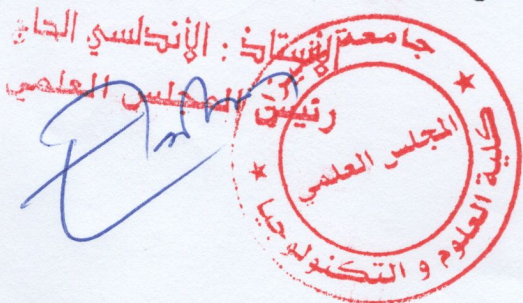 الأستاذ : الأندلسي الحاج
رئيس المجلس العلمي
جامعة
كلية العلوم و التكنولوجيا
المجلس العلمي